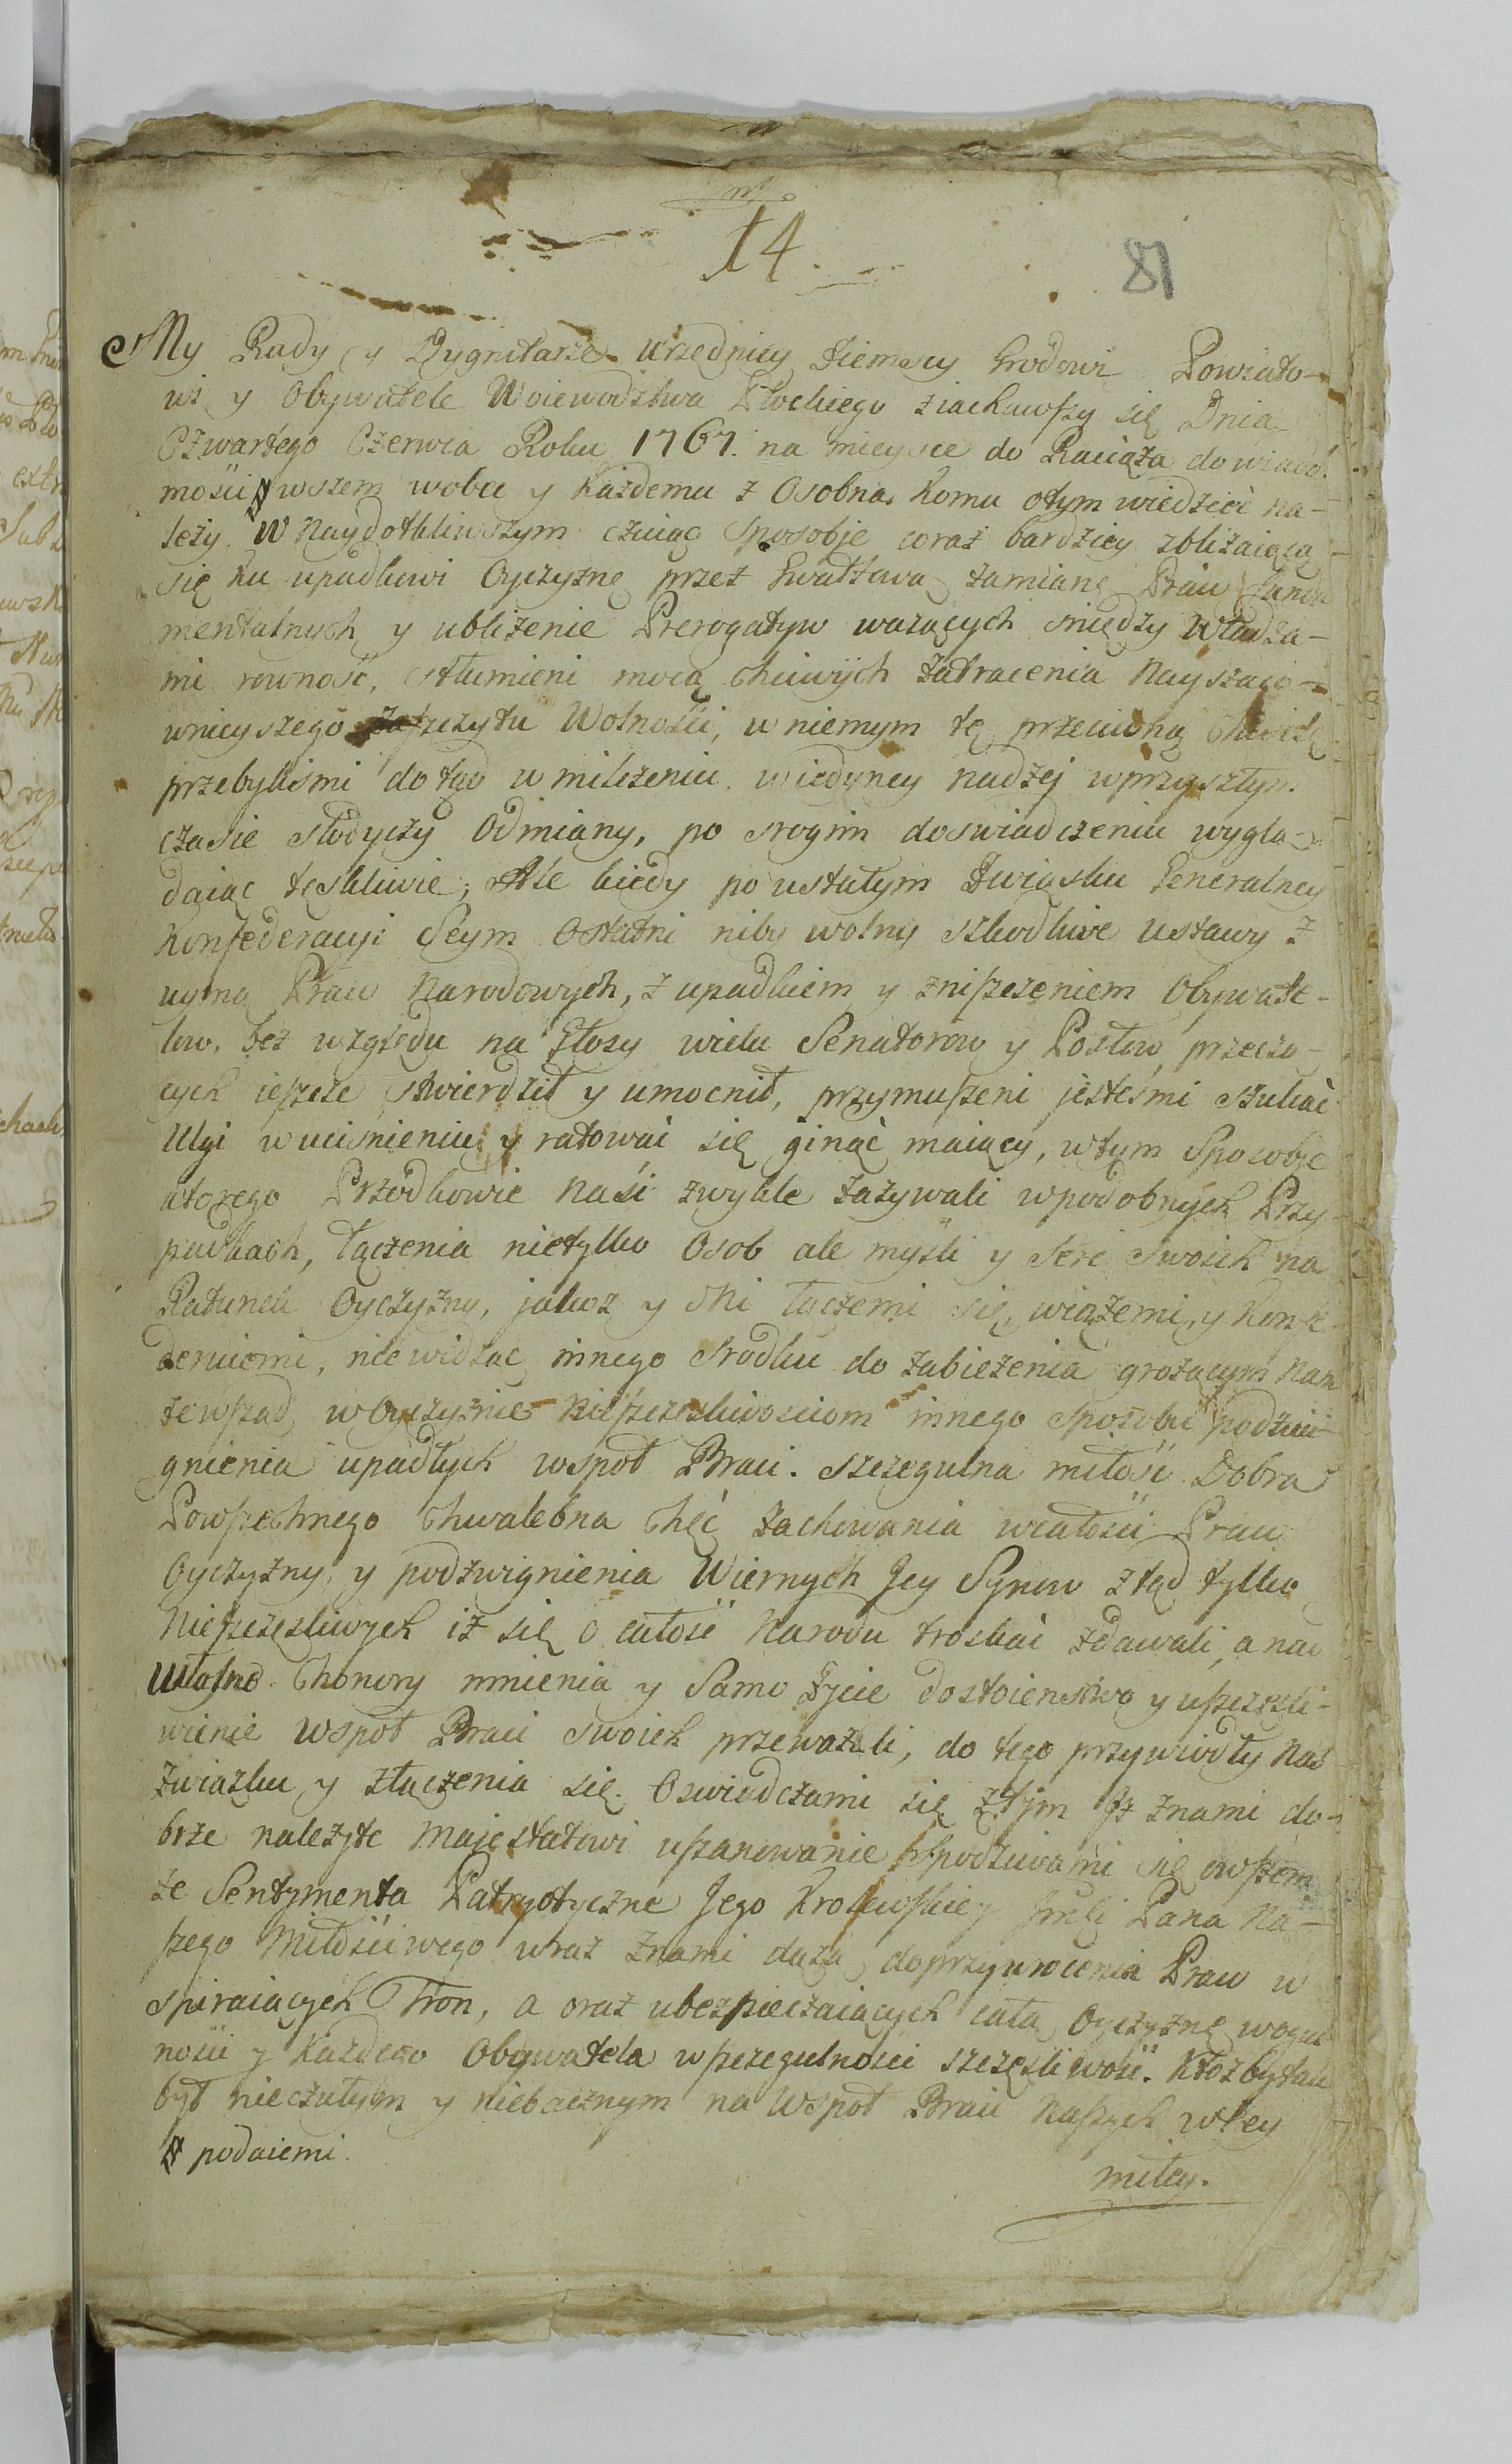 14.
81
My Rady y Dygnitarze Urzędnicy Ziemscy Grodowi Powiato-
wi y Obywatele Woiewodztwa Płockiego ziachawszy się Dnia
Czwartego Czerwca Roku 1767. na mieysce do Raciąża do wiado-
mości wszem wobec y każdemu z Osobna, komu otym wiedzieć na-
leży. W naydotkliwszym czuiąc sposobie coraz bardziey zbliżaiącą
się ku upadkowi Oyczyznę przez Gwałtową zamianę Praw funda
mentalnych y ubliżenie Prerogatyw ważących między Władza-
mi rowność, stłumieni mocą chciwych zatracenia Nayszaco-
wnieyszego zaszczytu Wolności, w niemym tę przeciwną chwilę
przebyliśmi dotąd w milczeniu, w iedyney nadzei w przyszłym
czasie słodyczy Odmiany, po srogim doswiadczeniu wyglą-
daiąc teskliwie; Ale kiedy po ustałym Związku Generalney
Konfederacyi Seym Ostatni niby wolny szkodliwe ustawy z
uymą Praw Narodowych, z upadkiem y zniszczeniem Obywate-
low, bez względu na Głosy wielu Senatorow y Posłow przeczą-
cych ieszcze stwierdził y umocnił, przymuszeni jesteśmi szukać
Ulgi w ucisnieniu y ratować się ginąć maiący, w tym Sposobie
ktorego Przodkowie Naśi zwykle zażywali w podobnych Przy-
padkach, łączenia nietylko Osob ale myśli y Serc Swoich na
Ratunek Oyczyzny, jakoz y My łączemi się, wiążemi, y Konfe-
deruiemi, nie widząc innego srodku do zabieżenia grożącym Nam
zewsząd w Oyczyznie Nieszczesliwosciom innego sposobu podzwi-
gnienia upadłych wspoł Braci. szczegulna miłość Dobra
Powszechnego chwalebna chęć zachowania w całości Praw
Oyczyzny, y podzwignienia Wiernych Jey Synow ztąd tylko
Nieszczęsliwych iż się o całość Narodu troskać zdawali, a nad
Własne Chonory mnienia y Samo Życie dostoieństwo y uszczęsli-
wienie wspoł Braci swoich przeważali, do tego przywiodły Nas
związku y złączenia się. Oswiadczami się z tym Iż znami do-
brze należyte Majestatowi uszanowanie spodziwami się owszem
że Sentymenta Patryotyczne Jego Krolewskiey Pana Na-
szego Miłościwego wraz znami dążą do przywrocenia Praw w
spieraiących Tron, a oraz ubezpieczaiących całą Oyczyznę wogul
ności y Każdego Obywatela w szczegulności szczęsliwość. Ktoz by tak
był nieczułym y niebacznym na Wspoł Braci Naszych w tey
podaiemi.
miłey.